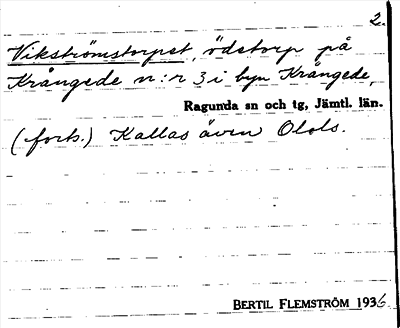 2.
Vikströmstorpet, ödetorp på
Krångede nr:r 3 i byn Krångede,
Ragunda sn och tg, Jämtl. län.
(forts.) Kallas även Olols.
BERTIL FLEMSTRÖM 1936